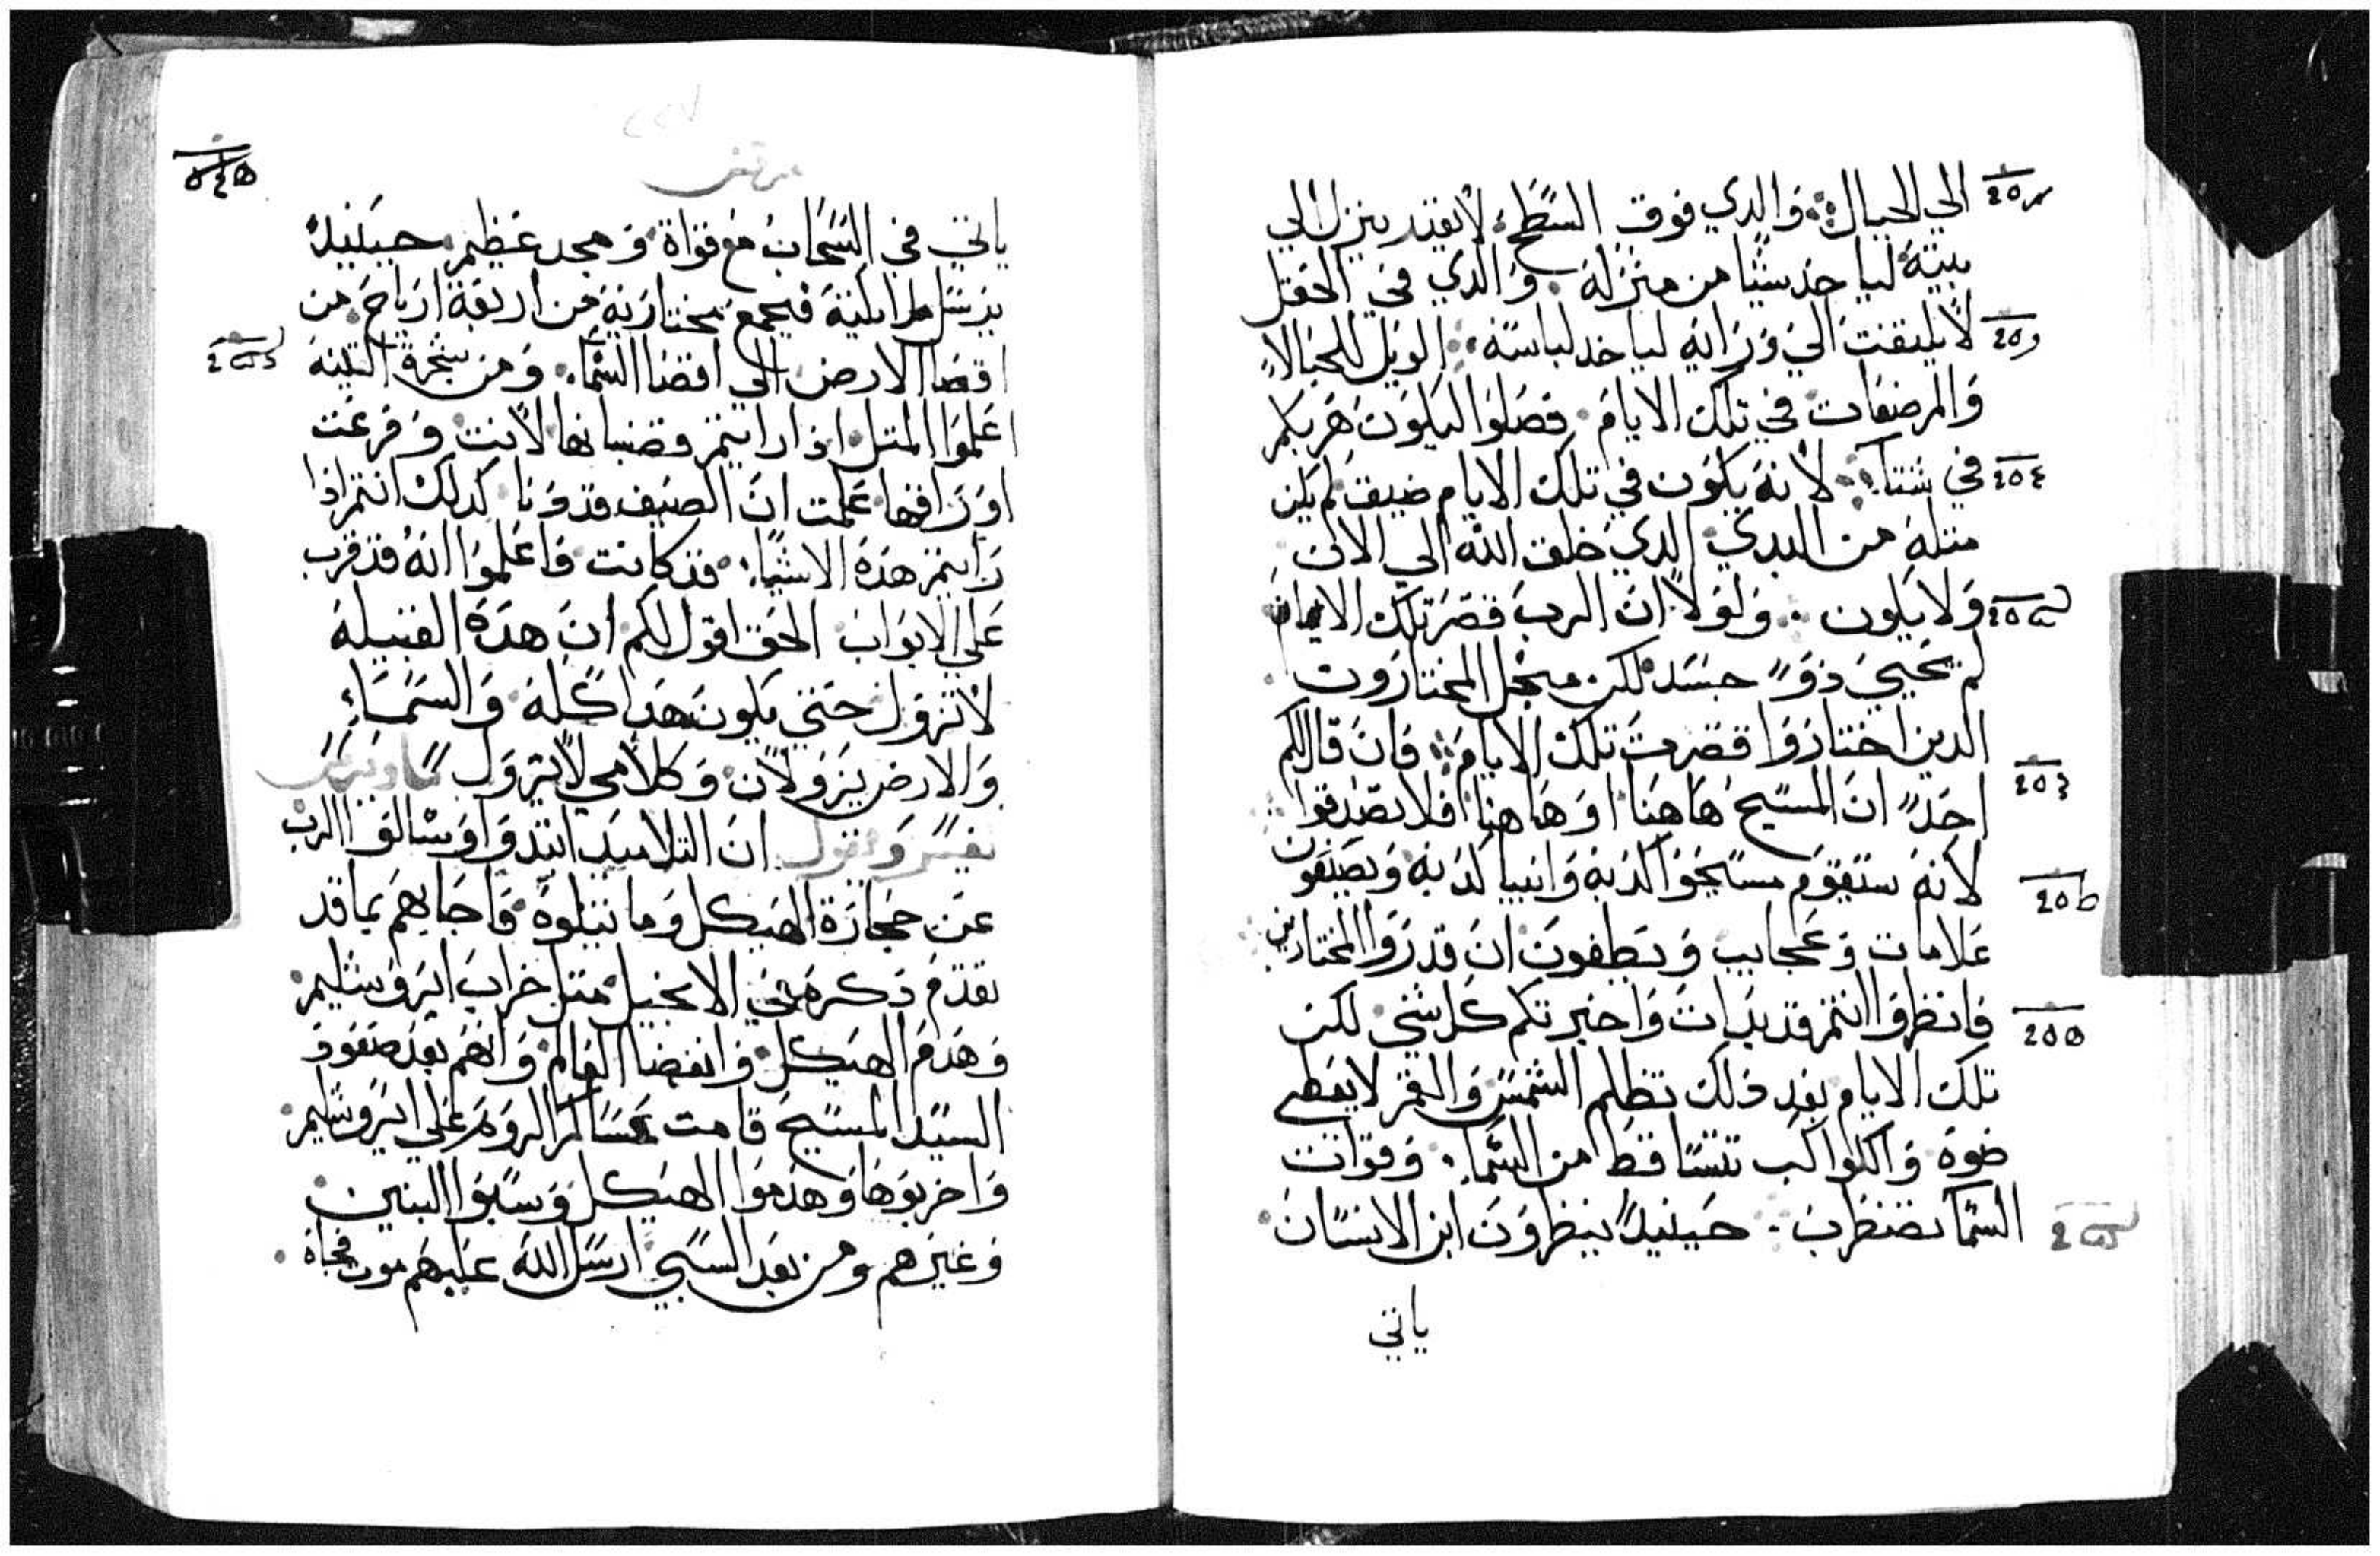 الي الجبال والدي فوق السطح لا يقتدر ينزل الي
بيته لياخد شيًا من منزله والدي في الحقل
لا يلتفت الي ورايه لياخد لباسه الويل للحبالا
والمرضعات في تلك الايام فصلوا ليلا يكون هربكم
في شتا لانه يكون في تلك الايام ضيق لم يكن
متله من البدي الدي خلق الله الي الان
ولا يكون ولولا ان الرب قصر تلك الايام
لم يحيي ذو جسد لكن من اجل المختارون
الدين اختاروا قصرت تلك الايام فان قال لكم
احد ان المسيح هاهنا او هاهنا فلا تصدقوا
لانه ستقوم مسيحوا كدبه وانبيا كدبه ويصنعون
علامات وعجايب ويطغون ان قدروا المختارين
فانظروا انتم قد بدات واخبرتكم كل شي لكن
تلك الايام بعد ذلك تظلم الشمس والقمر لا يعطي
ضوه والكواكب تتساقط من السما وقوات
السما تضطرب حينيدً ينظرون ابن الانسان
ياتي
مرقس
ياتي في السحاب مع قواة ومجد عظيم حينيدً
يرسل ملايكته فيجمع مختاريه من اربعة ارياح من
اقصا الارض الي اقصا السما ومن شجرة التينه
اعلموا المتل اذا رايتم قضبانها لانت وفرعت
اوراقها علمت ان الصيف قد دنا كدلك انتم اذا
رايتم هذه الاشيا قد كانت فاعلموا انه قد قرب
علي الابواب الحق اقول لكم ان هذه القبيله
لا تزول حتي يكون هدا كله والسماء
والارض يزولان وكلامي لا يزول
نفسر ونقول ان التلاميد ابتدوا وسالوا الرب
عن حجارة الهيكل وما يتلوه فاجابهم بما قد
تقدم ذكره في الانجيل متل خراب ايروشليم
وهدم الهيكل وانقضا العالم وانهم بعد صعود
السيد المسيح قامت عساكر الروم علي ايروشليم
واخربوها وهدموا الهيكل وسبوا البنين
وغيرهم ومن بعد السبي ارسل الله عليهم موت فجاة